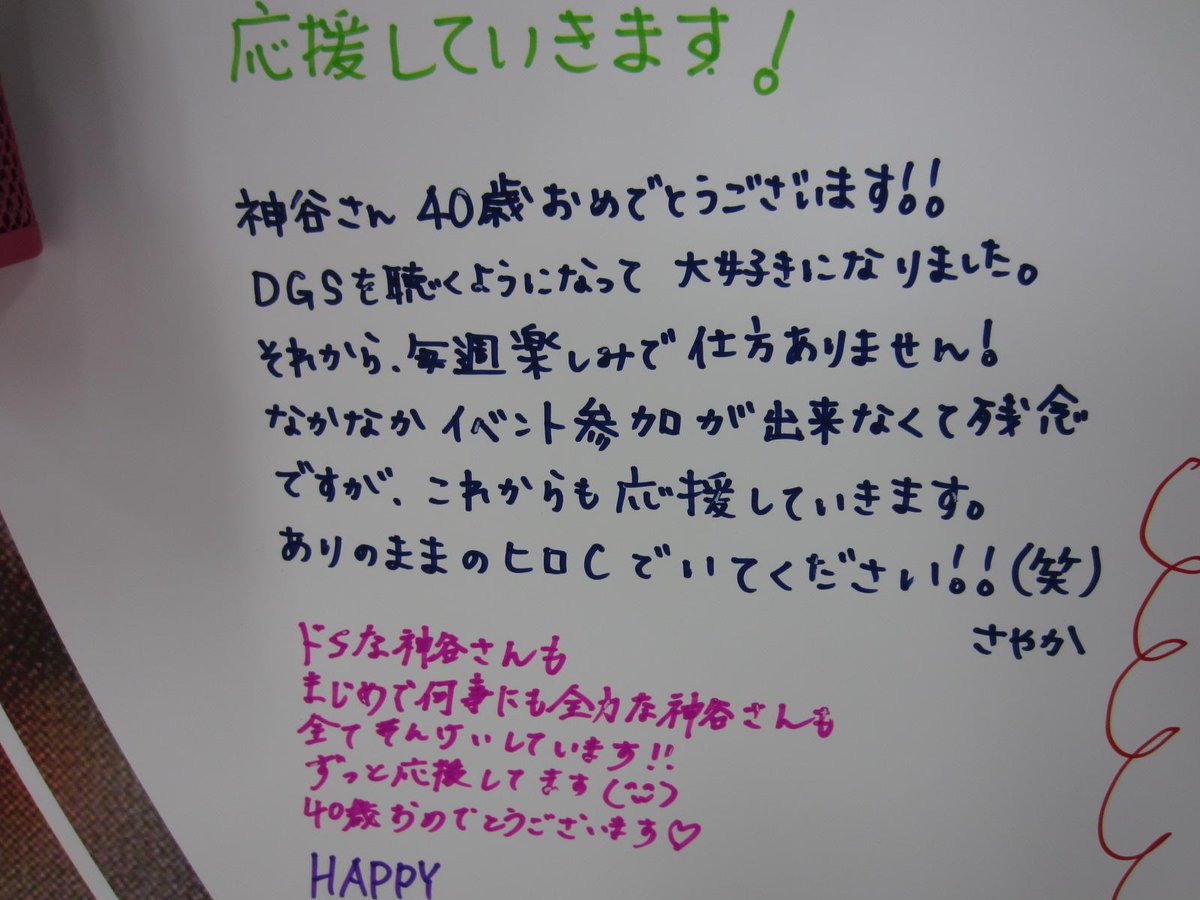 応援していきます!
神谷さん 40歳おめでとうございます!!
DGSを聴くようになって 大好きになりました。
それから、毎週楽しみで仕方ありません!
なかなかイベント参加が出来なくて残念
ですが、これからも応援していきます。
ありのままのヒロCでいてください!!(笑)
さやか
ドSな神谷さんも
まじめで何事にも全力な神谷さんも
全てそんけいしています!!
ずっと応援してます(^ ^)
40歳おめでとうございます♡
HAPPY